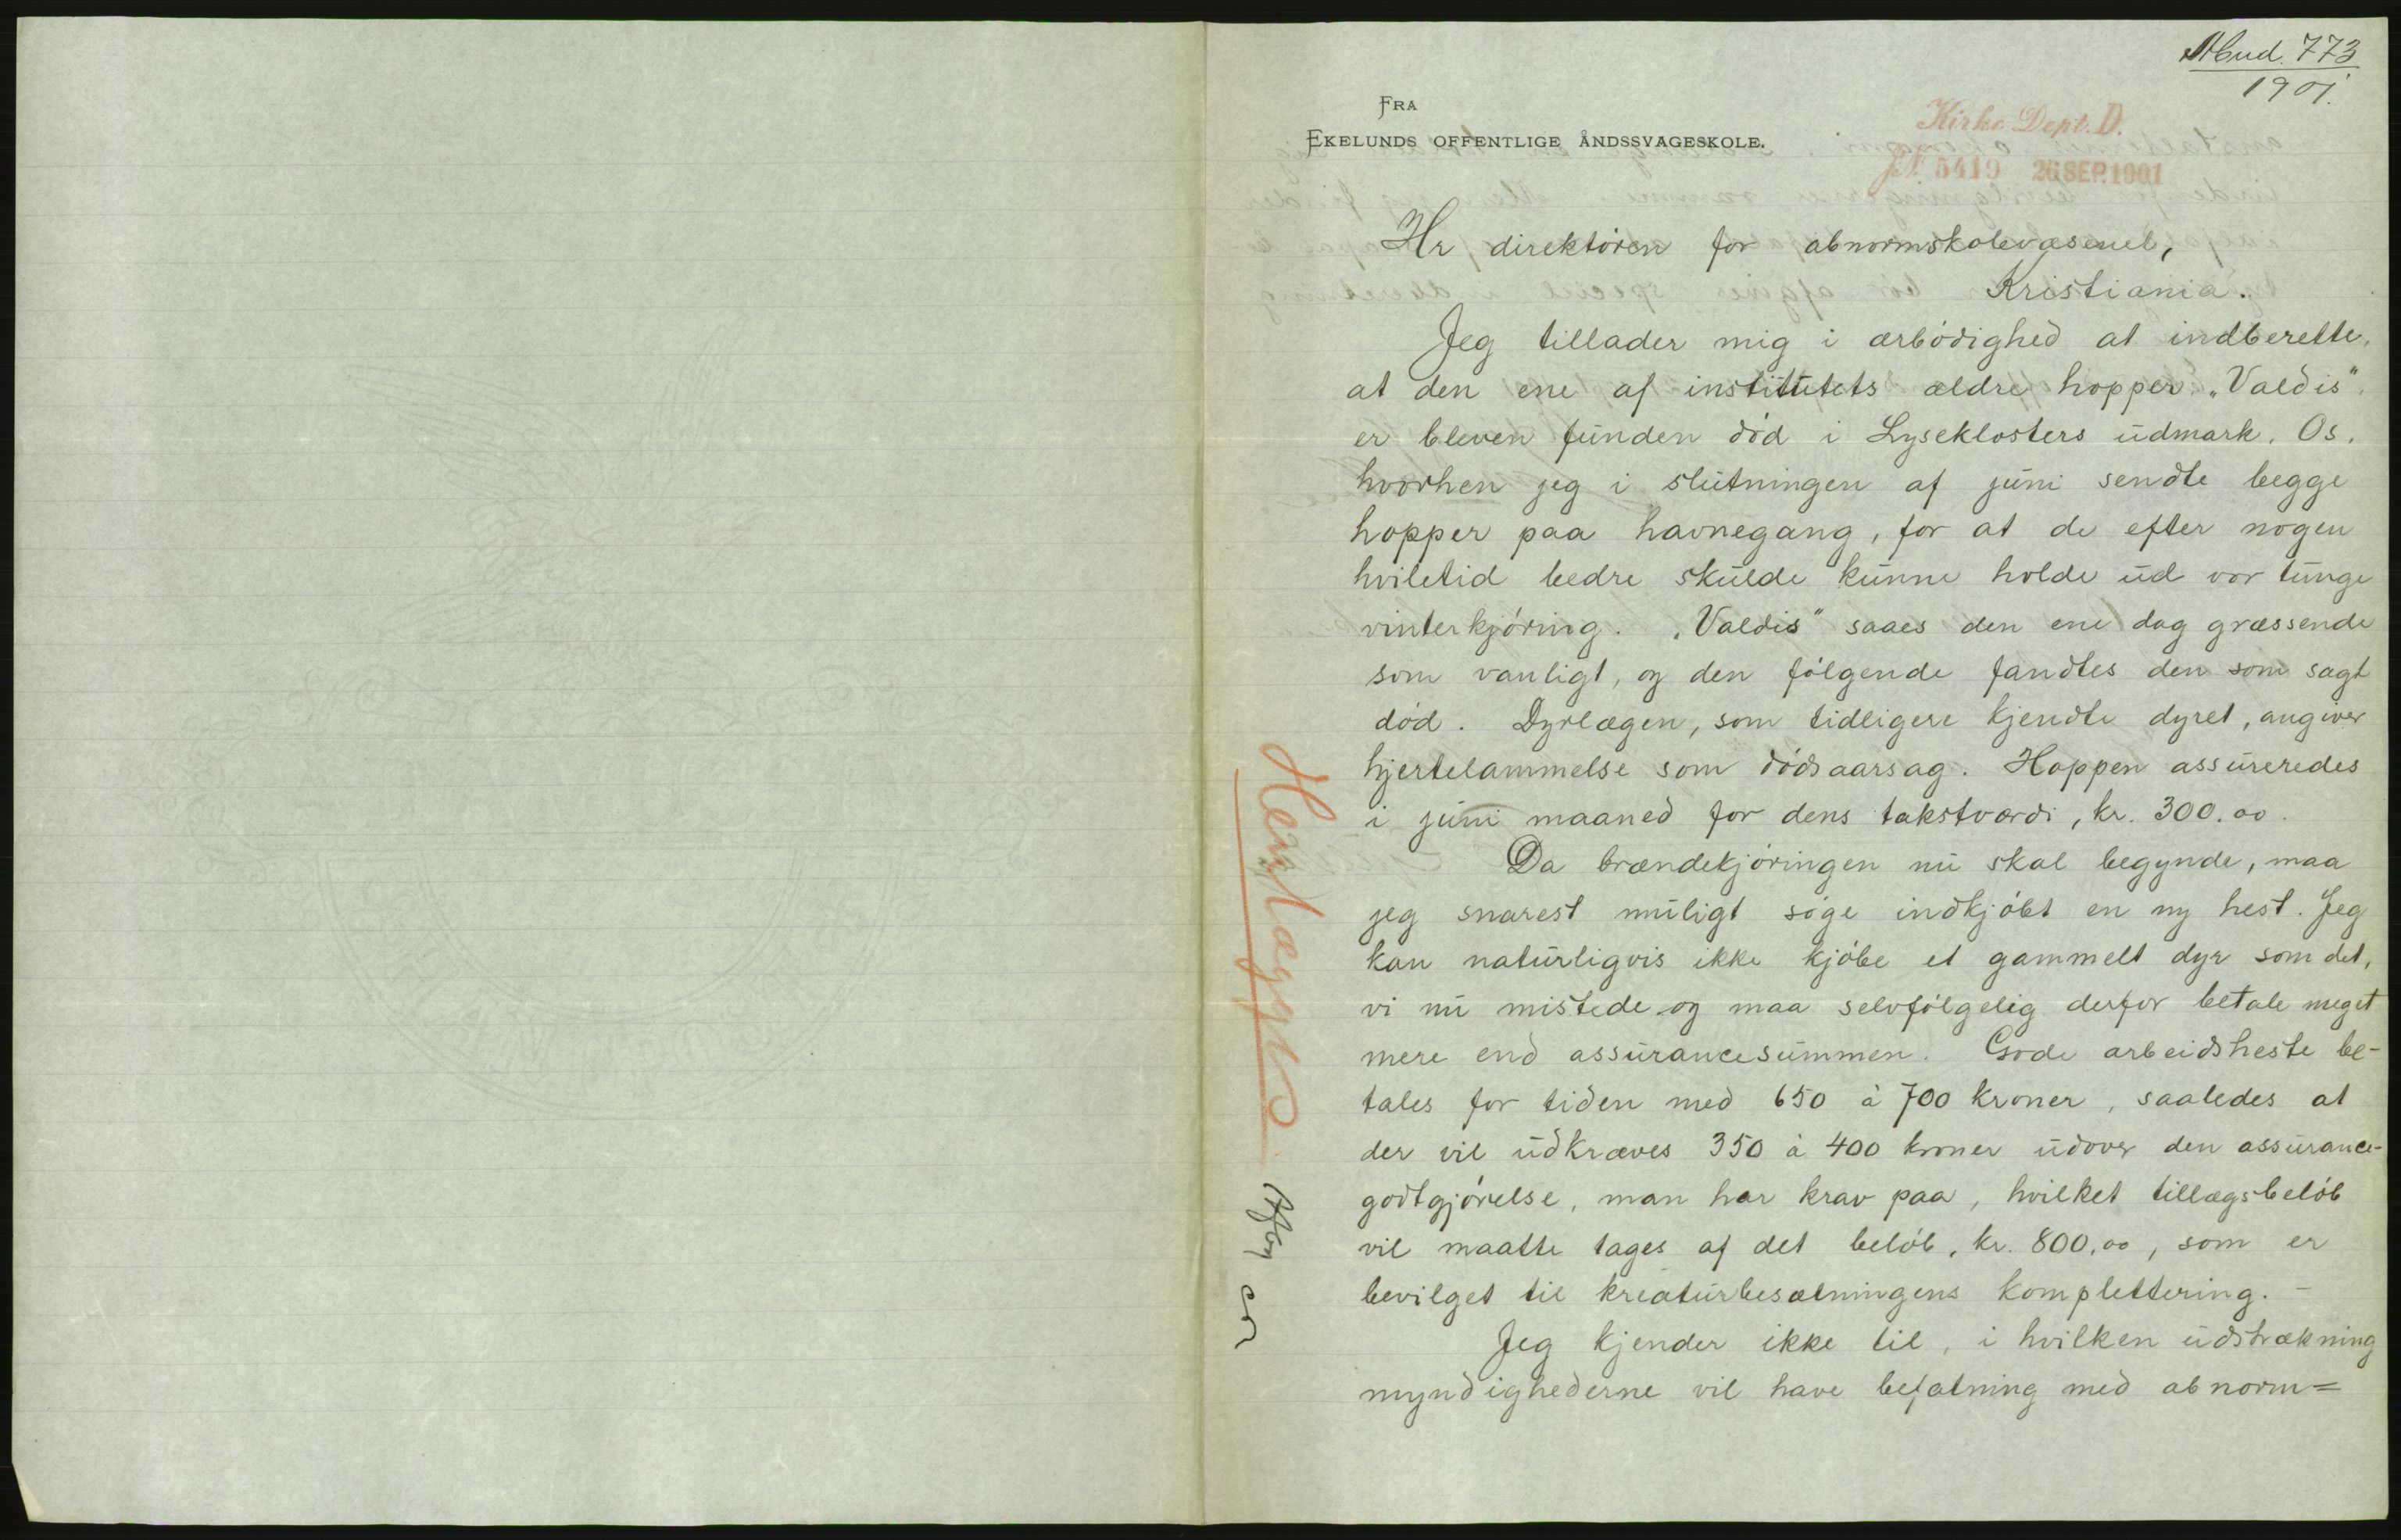 773
1901.
FRA
EKELUNDS OFFENTLIGE ÅNDSSVAGESKOLE.
Kirke Dept. D.
JN. 5419 26 SEP. 1901
Hr direktören for abnormskolevæsenet,
Kristiania.
Jeg tillader mig i ærbödighed at indberette,
at den ene af institutets ældre hopper „Valdis",
er bleven funden död i Lyseklosters udmark, Os,
hvorhen jeg i slutningen af juni sendte begge
hopper paa havnegang, for at de efter nogen
hviletid bedre skulde kunne holde ud vor tunge
vinterkjöring. „Valdis" saaes den ene dag græssende
som vanligt, og den fölgende fandtes den som sagt
död. Dyrlægen, som tidligere kjendte dyret, angiver
hjertelammelse som dödsaarsag. Hoppen assureredes
i juni maaned for dens takstværdi, kr. 300.00.
Da brændekjöringen nu skal begynde, maa
jeg snarest muligt söge indkjöbt en ny hest. Jeg
kan naturligvis ikke kjöbe et gammelt dyr som det,
vi nu mistede og maa selvfölgelig derfor betale meget
mere end assurancesummen. Gode arbeidsheste be-
tales for tiden med 650 à 700 kroner, saaledes at
der vil udkræves 350 à 400 kroner udover den assurance-
godtgjörelse, man har krav paa, hvilket tillægsbelöb
vil maatte tages af det belöb, kr. 800,00, som er
bevilget til kreaturbesætningens komplettering. –
Jeg kjender ikke til, i hvilken udstrækning
myndighederne vil have befatning med abnorm=
Henlægges